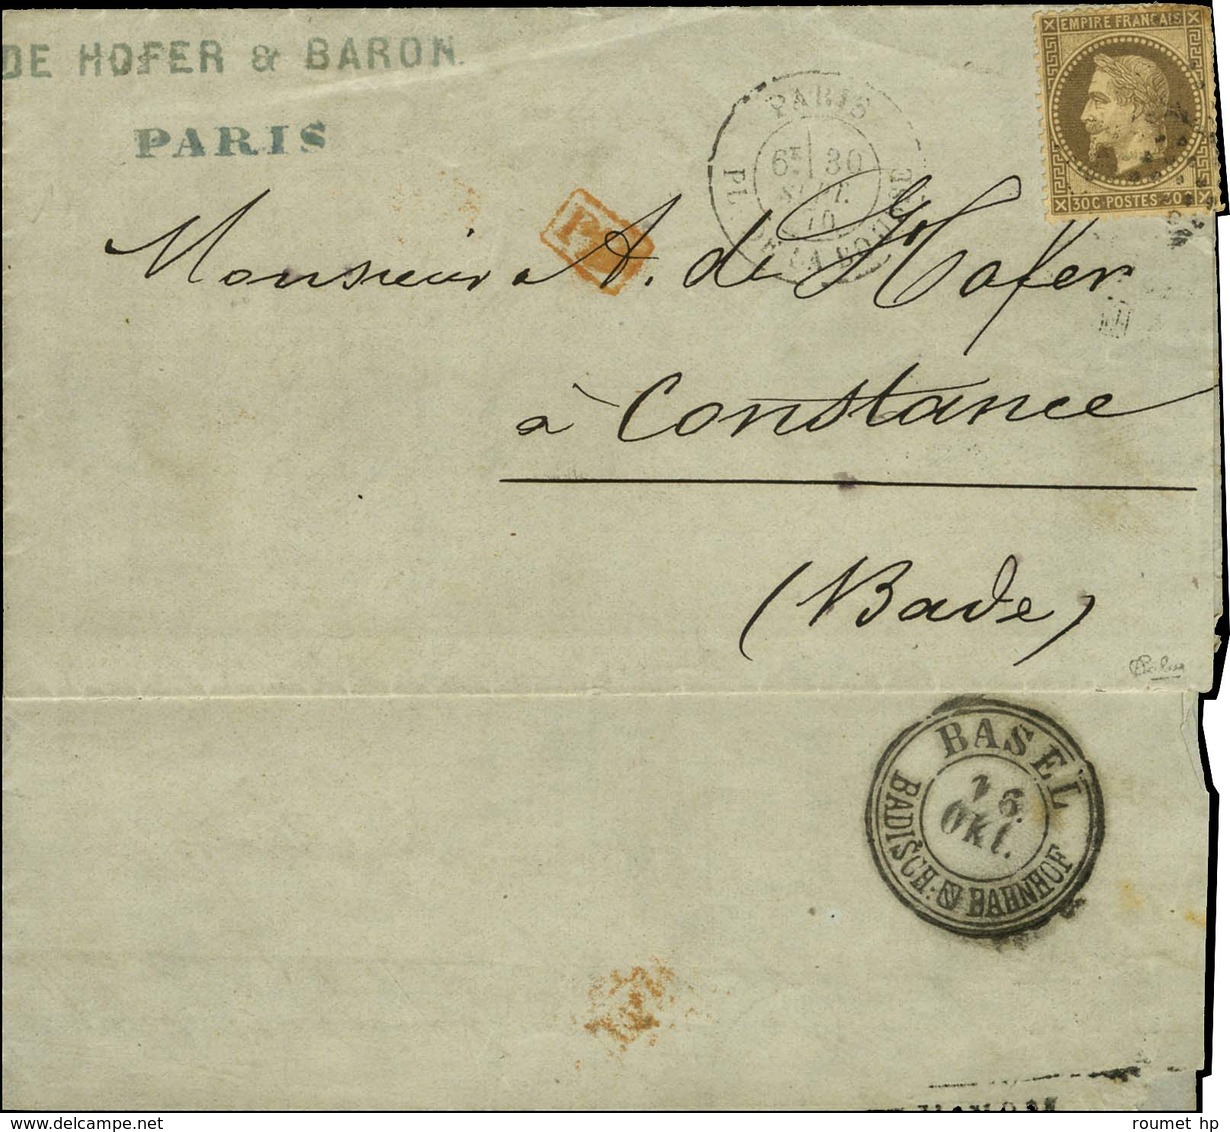 DE HOFER & BARON.
PARIS
EMPIRE FRANÇAIS
30C POSTES 30C
PARIS
6E 30
SEPT.
70
PL. DE LA BOURSE
Monsieur A. de Hofer
à Constance
(Bade)
BASEL
26
Okt.
BADISCH. BAHNHOF
roumet hp